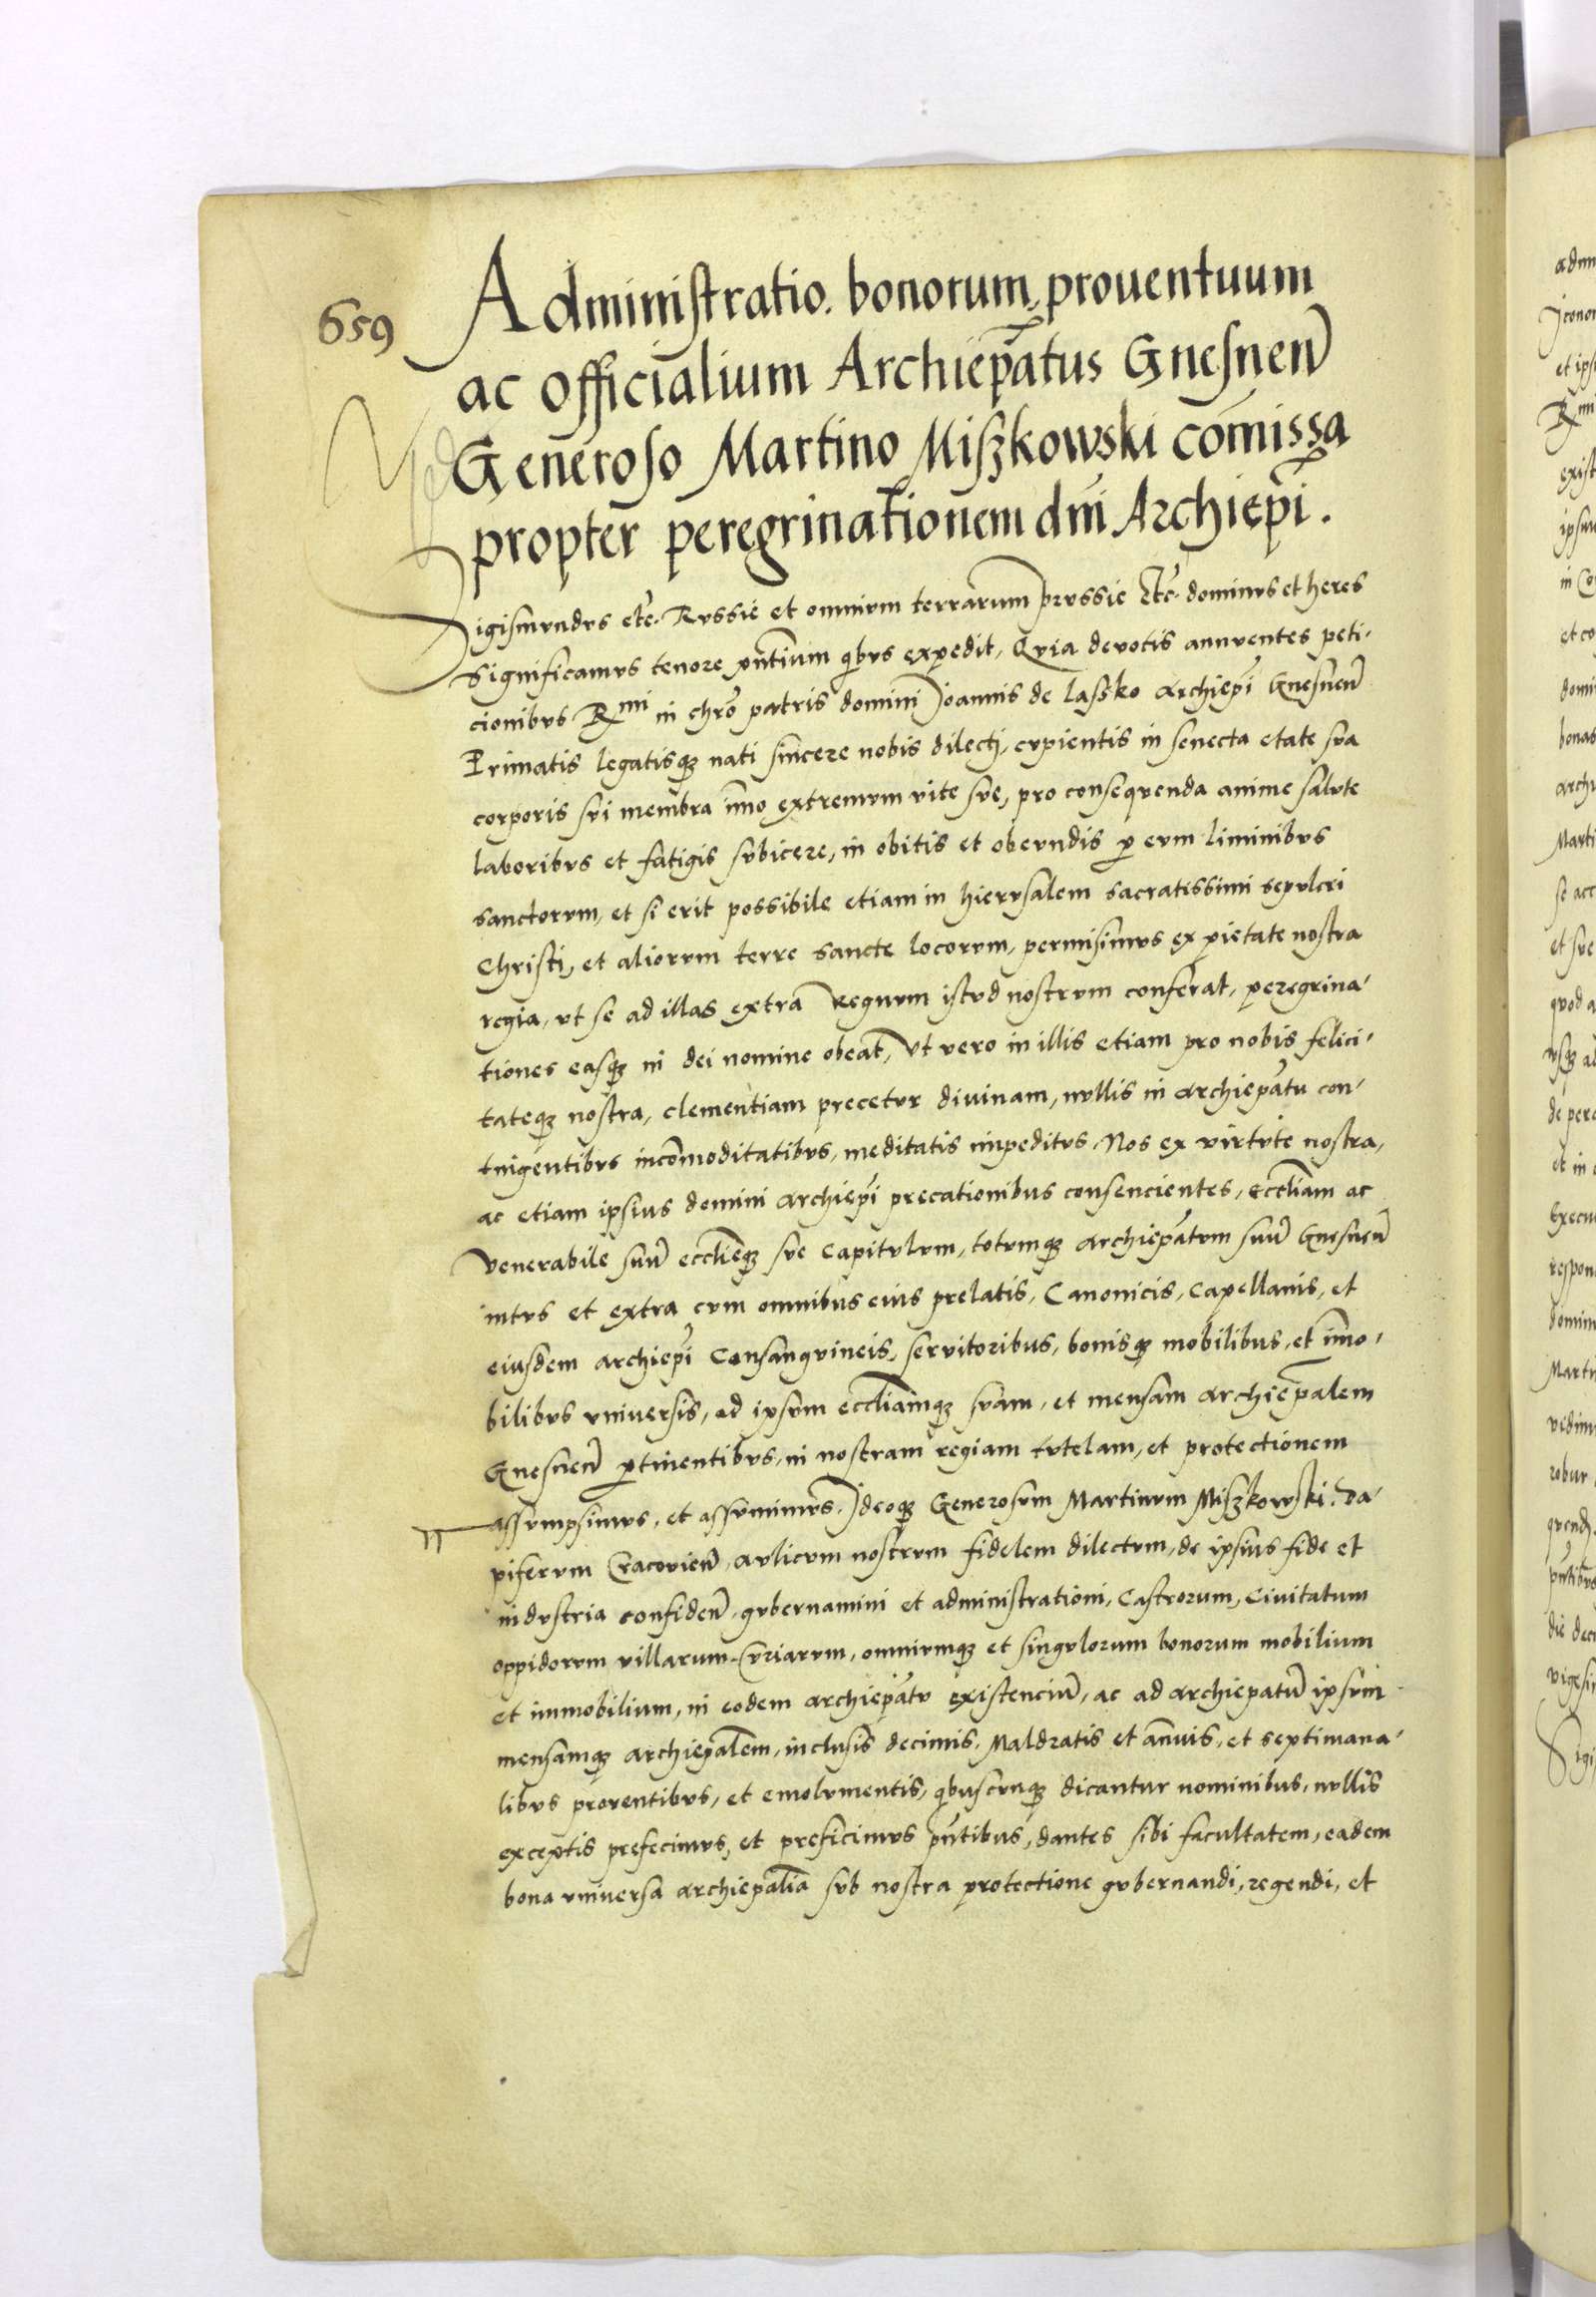 659
Administratio. bonorum, prouentuum
ac officialium Archiep̃atus Gnesneñ
Generoso Martino Miszkowski com̃issa
propter peregrinationem dm̃i Archiep̃i.
Sigismundus etc̃. Russie et omnium terrarum prussie Etc̃. dominus et heres
Significamus tenore pñtium qibus expedit, Quia deuotis annuentes peti-
cionibus Rmi in chrõ patris domini Joannis de laszko Archiep̃i Gnesneñ
Primatis legatisq; nati sincere nobis dilecti, cupientis in senecta etate sua
corporis sui membra im̃o extremum vite sue, pro consequenda anime salute
laboribus et fatigis subicere, in obitis et obeundis p eum liminibus
sanctorum, et si erit possibile etiam in hierusalem sacratissimi sepulcri
Christi, et aliorum terre sancte locorum, permisimus ex pietate nostra
regia, ut se ad illas extra Regnum istud nostrum conferat, peregrina-
tiones easq; in dei nomine obeat, Ut vero in illis etiam pro nobis felici-
tateq; nostra, clementiam precetur diuinam, nullis in Archiep̃atu con-
tingentibus incom̃oditatibus, meditatis impeditus, Nos ex virtute nostra,
ac etiam ipsius domini Archiep̃i precationibus consencientes, eccl̃iam ac
Venerabile suũ eccl̃ieq; sue Capitulum, totumq; Archiep̃atum suũ Gnesneñ
intus et extra cum omnibus eius prelatis, Canonicis, Capellanis, et
eiusdem Archiep̃i Consanguineis, seruitoribus, bonisq; mobilibus, et im̃o-
bilibus vniuersis, ad ipsum eccl̃iamq; suam, et mensam Archiep̃alem
Gnesneñ ptinentibus, in nostram regiam tutelam, et protectionem
assumpsimus, et assumimus. Ideoq; Generosum Martinum Miszkowski. Da-
piferum Cracovieñ, aulicum nostrum fidelem dilectum, de ipsius fide et
industria confideñ, gubernamini et administrationi, Castrorum, Ciuitatum
oppidorum villarum, Curiarum, omniumq; et singulorum bonorum mobilium
et immobilium, in eodem archiep̃atu existenciũ, ac ad archiepatũ ipsum
mensamq; archiepalem, inclusis decimis, Maldratis et anñuis, et septimana-
libus prouentibus, et emolumentis, qibuscunq; dicantur nominibus, nullis
exceptis prefecimus, et preficimus pñtibus, dantes sibi facultatem, eadem
bona vniuersa archiepalia sub nostra protectione gubernandi, regendi, et